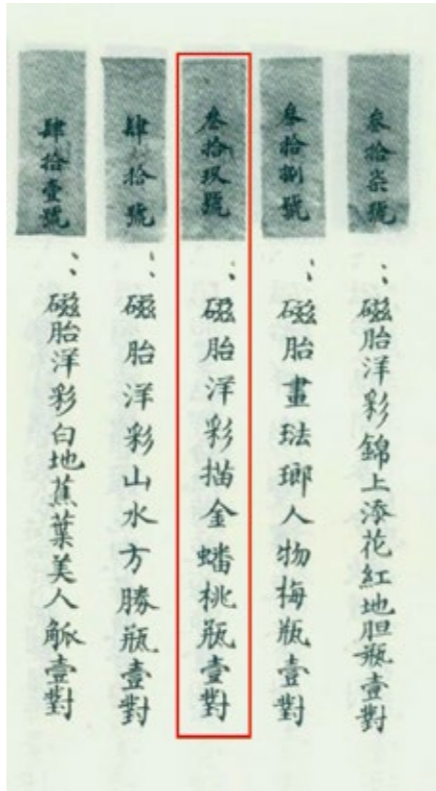 叁拾柒號
磁胎洋彩錦上添花紅地胆瓶壹對
叁拾捌號
磁胎畫琺瑯人物梅瓶壹對
叁拾玖號
磁胎洋彩描金蟠桃瓶壹對
肆拾號
磁胎洋彩山水方勝瓶壹對
肆拾壹號
磁胎洋彩白地蕉葉美人觚壹對